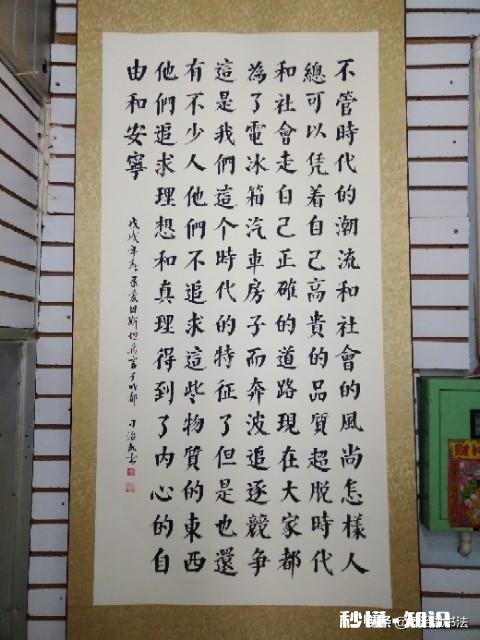 不管時代的潮流和社會的風尚怎樣人
總可以凭着自己高貴的品質超脫時代
和社會走自己正確的道路現在大家都
為了電冰箱汽車房子而奔波追逐競爭
這是我們這个時代的特征了但是也還
有不少人他們不追求這些物質的東西
他們追求理想和真理得到了内心的自
由和安寧
戊戌年春录愛因斯坦名言于成都
治
財神
秒懂·知识
头条
书法